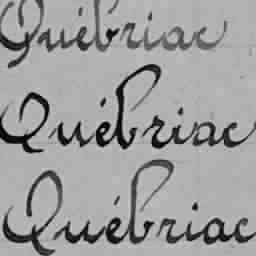 Québriac
Québriac
Québriac